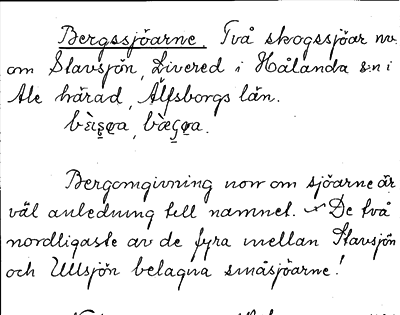 Bergssjöarne. Två skogssjöar nv.
om Stavsjön, Livered i Hålanda sn i
Ale härad, Älfsborgs län.
Bergomgivning norr om sjöarne är
väl anledning till namnet. De två
nordligaste av de fyra mellan Stavsjön
och Ullsjön belägna småsjöarne!